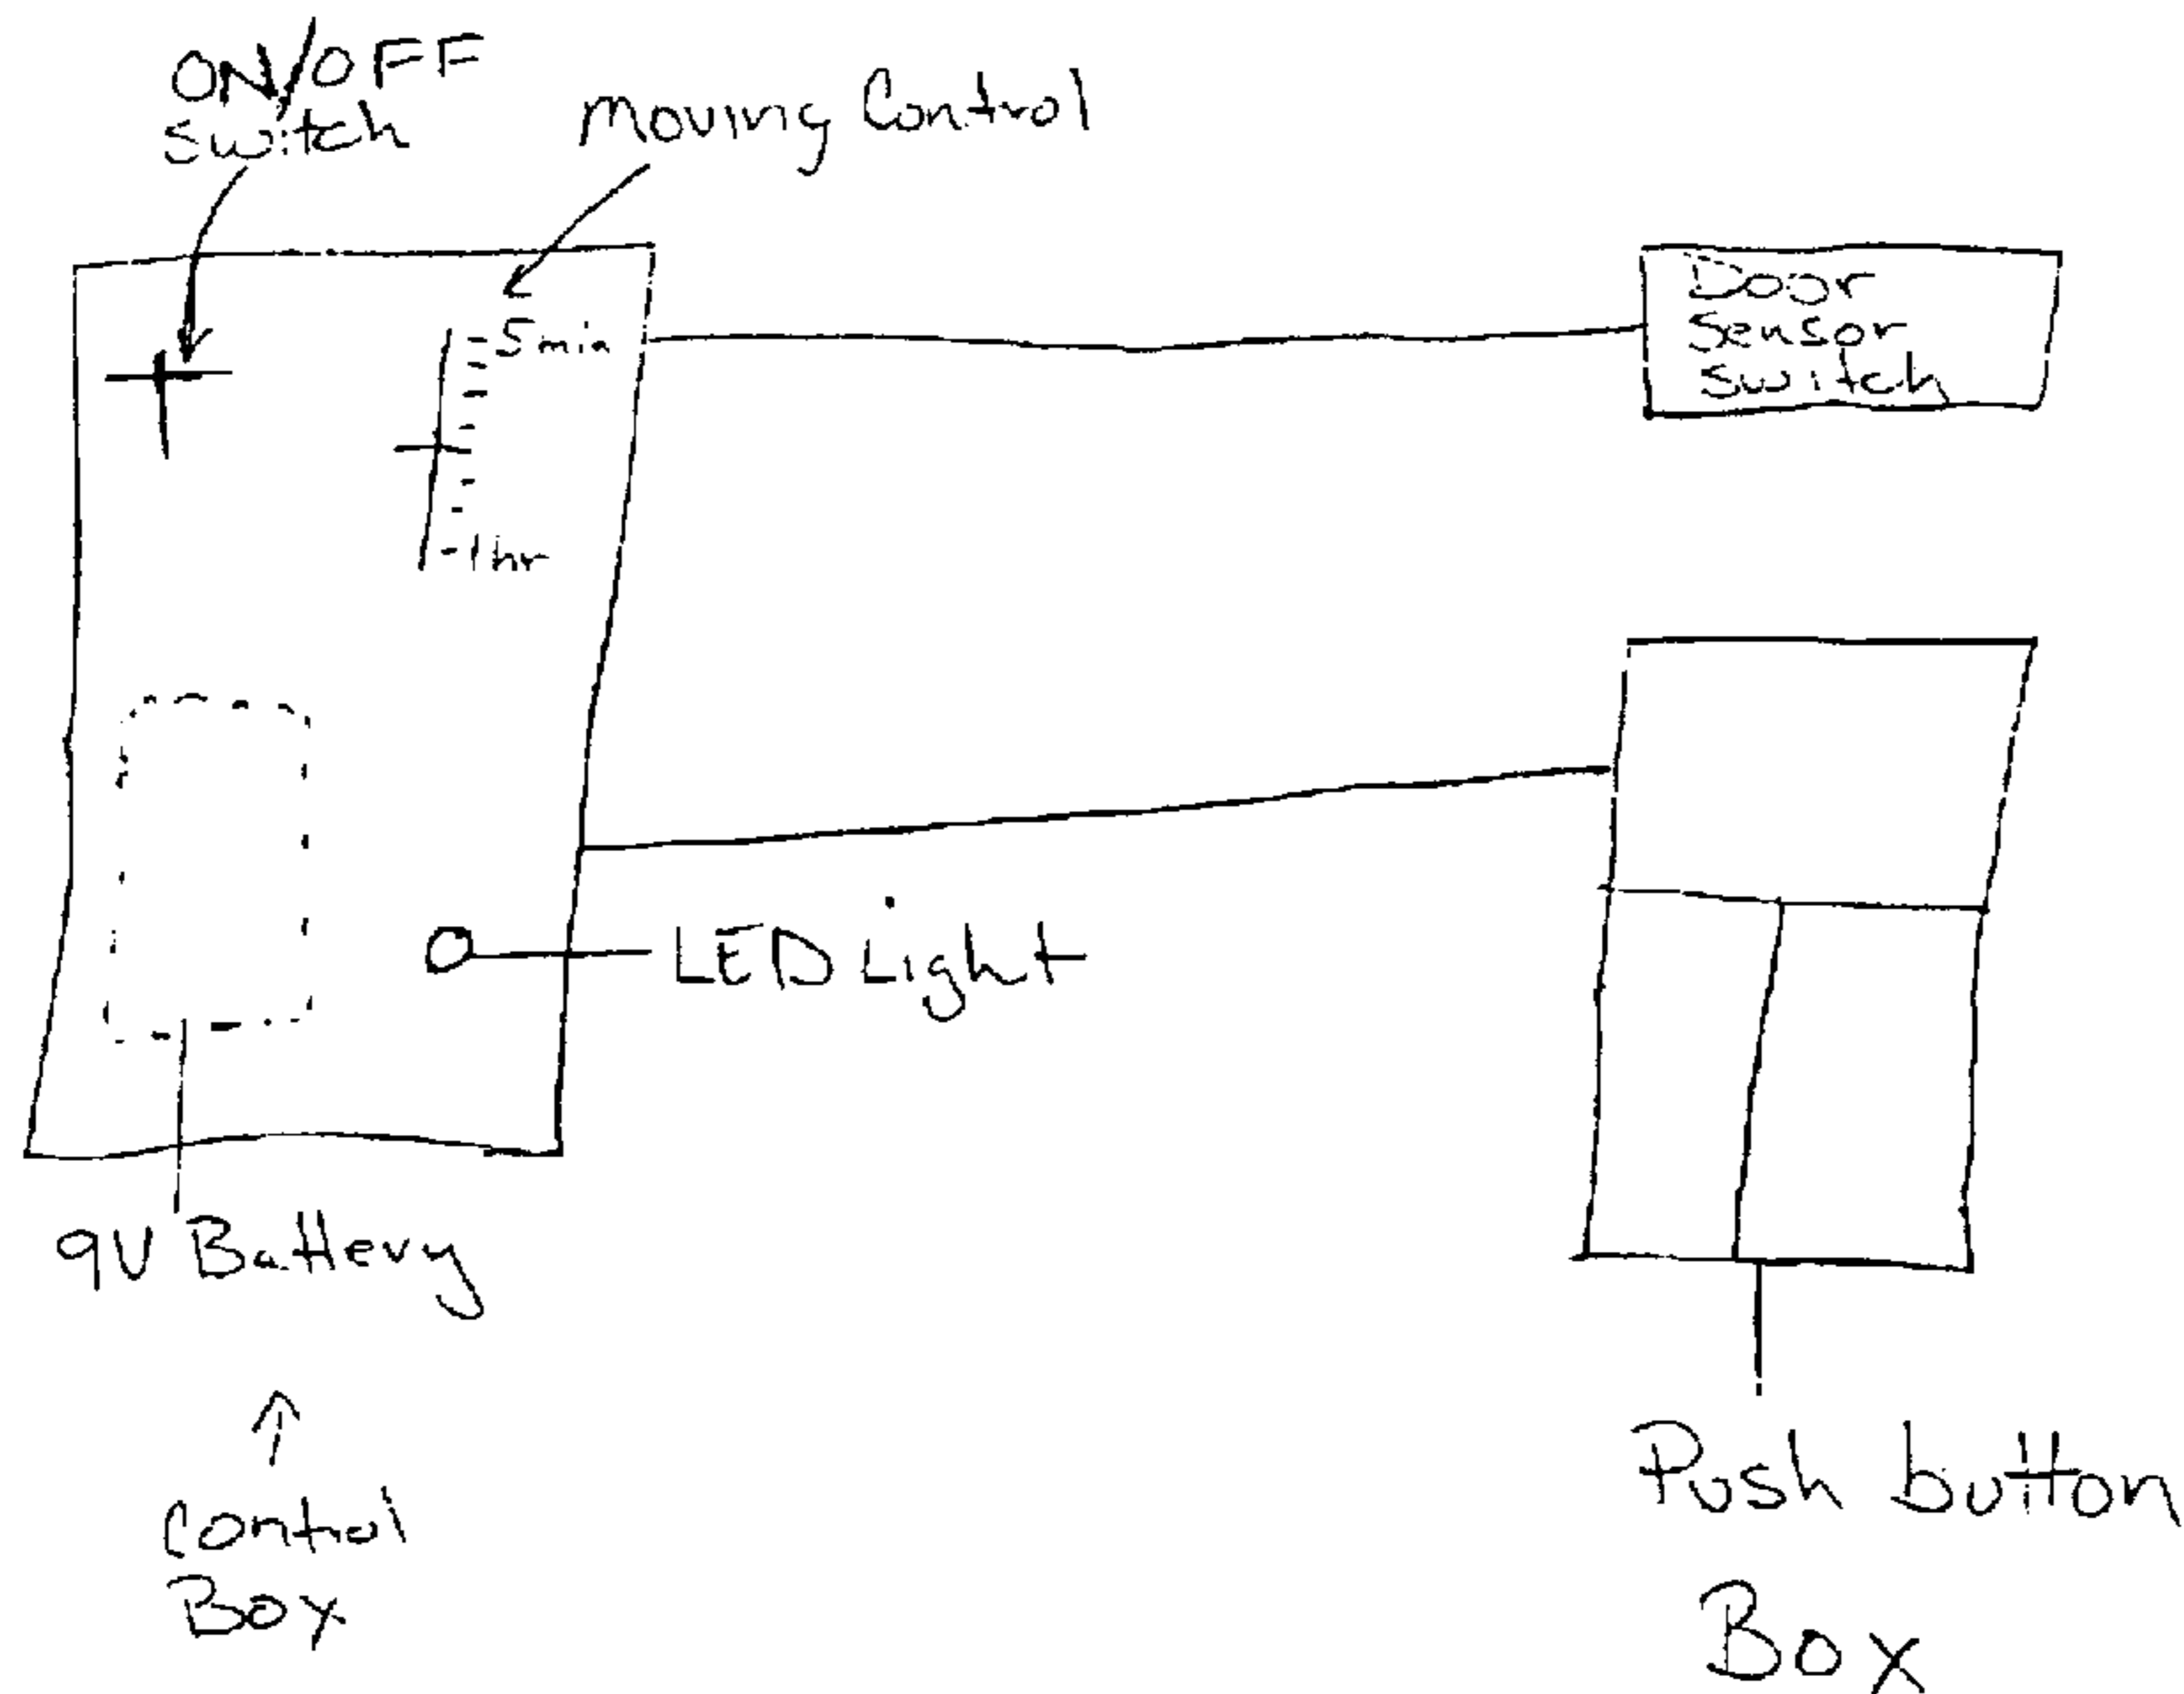 ON/OFF
switch
Moving Control
5 min
1 hr
Door
Sensor
Switch
LED Light
9V Battery
Control
Box
Push button
Box